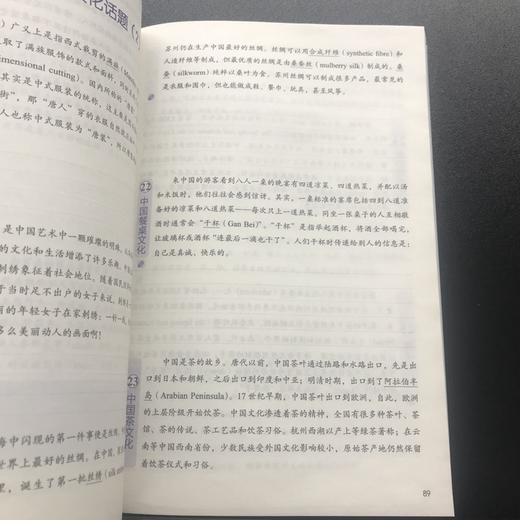 化话题（
）广义上是指西式裁剪的满族（
取了满族服饰的款式和面料，同时
imensional cutting)。因为所谓的
其实是中式服装的统称，这主要
街"，那"唐人"穿的衣服自然就
人也称中式服装为"唐装"，所以
是中国艺术中一颗璀璨的明珠，
的文化和生活增添了许多乐趣。中国
刺绣象征着社会地位。随着国民
于当时足不出户的女子来说，刺绣
丽的年轻女子在家刺绣：一针一线，
多么美丽动人的画面啊！
海中闪现的第一件事便是丝绸。
世界上最好的丝绸。在中国，
里，诞生了第一批丝绸（silk
苏州仍在生产中国最好的丝绸。丝绸可以用合成纤维（synthetic fibre）和
人造纤维等制成，但最优质的丝绸是由桑蚕丝（mulberry silk）制成的。桑
蚕（silkworm）纯粹以桑叶为食。苏州丝绸可以制成很多产品，最常见的
是衣服和围巾，但也能做成鞋、餐巾、玩具，甚至风筝。
22
中国餐桌文化
来中国的游客看到八人一桌的晚宴有四道凉菜、四道热菜，并配以汤
和米饭时，他们往往会感到惊讶。其实，一桌标准的客席包括四到八道准
备好的凉菜和八道热菜——每次只上一道热菜。同坐一张桌子的人互相敬
酒时通常会"干杯（Gan Bei）"。"干杯"是指举起酒杯，将酒全部喝完，
让玻璃杯或酒杯"连最后一滴也干了"。人们干杯时传递给别人的信息是：
自己是真诚、快乐的。
23
中国茶文化
中国是茶的故乡。唐代以前，中国茶叶通过陆路和水路出口，先是出
口到日本和朝鲜，之后出口到印度和中亚；明清时期，出口到了阿拉伯半
岛（Arabian Peninsula）。17 世纪早期，中国茶叶出口到欧洲，自此，欧洲
的上层阶级开始饮茶。中国文化渗透着茶的精神，全国有很多种茶叶、茶
馆、茶的传说、茶工艺品和饮茶习俗。杭州西湖以产上等绿茶著称；在云
南等中国西南省份，少数民族受外国文化影响较小，原始茶产地仍然保留
着饮茶仪式和习俗。
89